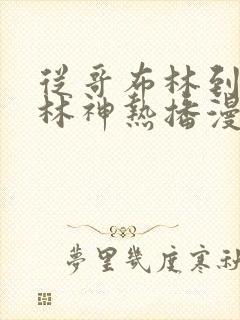 從哥布林到
林神熱播漫
夢里幾度寒秋